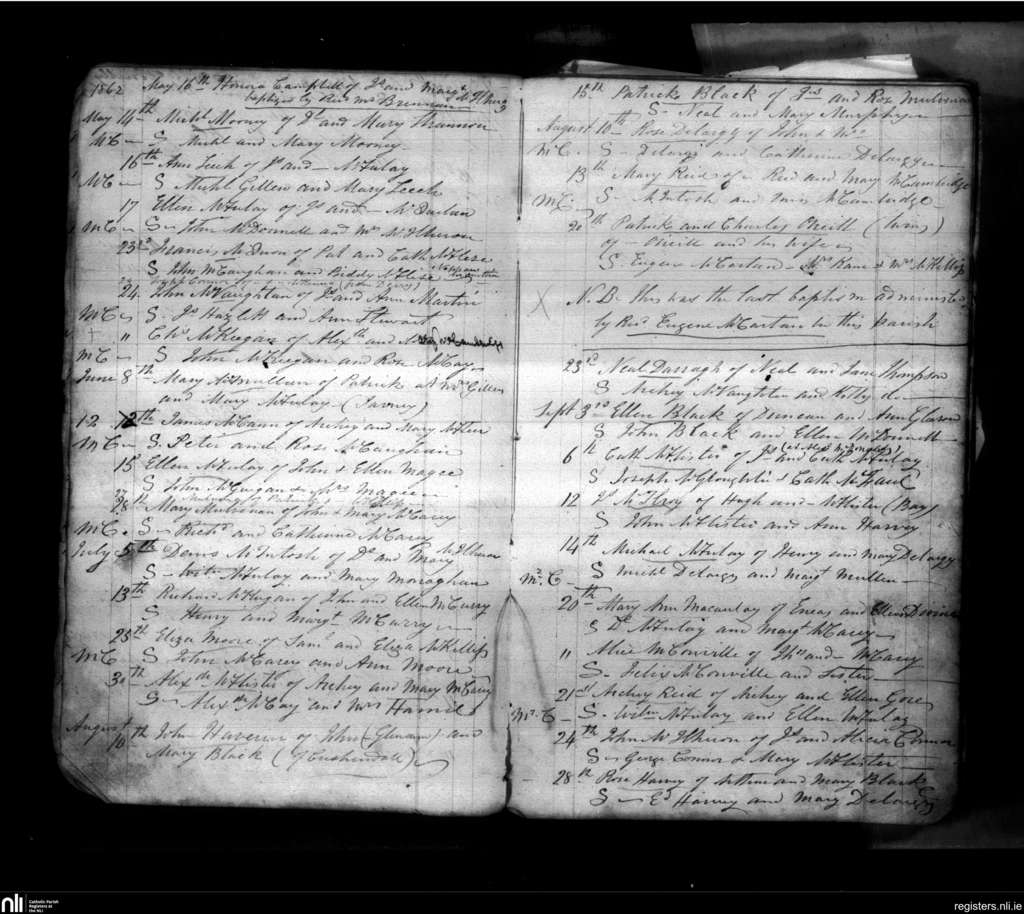 1862 May 16th Honora Campbell of Js and Margt McIlherg
baptized by Revd Mr Brennan
May 14th Michl Mooney of Js and Mary Shannon
McC S Michl and Mary Mooney
16th Ann Leech of Js and - McAulay
McC S Michl Gillen and Mary Leech
17 Ellen McAulay of Js and -
McC S John McDonnell and Mrs McIlheron
23rd Francis of Pat and Cath
S John McCaughan and Biddy
24 John McNaughtan of Js and Ann Martin
McC S Js Hazlett and Ann Stewart
" Chs McKeegan of Alexth and
McC S John McKeegan and Rose McCay
June 8th Mary McMullen of Patrick at Mrs Gillen
and Mary McAulay (Tavney)
12 12th James McCann of Archey and Mary
McC S Peter and Rose McCaughan
15 Ellen McAulay of John & Ellen Magee
S John McGuigan & Mrs Magee
28th Mary Mulvenan of John & Mary McCarey
McC S Richd and Catherine McCarey
July 5th Denis McIntosh of Ds and Mary McIlheran
S Willm McAulay and Mary Monaghan
13th Richard McFugan of John and Ellen McCurry
S Henry and Margt McCurry
25th Eliza Moore of Saml and Eliza McKillip
McC S John McCarey and Ann Moore
30th Alexth McAlister of Archey and Mary McCarey
S Alexth McCay and Mrs Hamil
August 10th John Haveron of John (Glenarm) and
Mary Black (of Cushendall)
15th Patrick Black of Js and Rose Mulvenna
S Neal and Mary Murphy
August 10th Rose Delargy of John & Mrs
McC S Delargy and Catherine Delargy
13th Mary Reid of - Reid and Mary McCambridge
McC S McIntosh and Miss McCambridge
20th Patrick and Charles Oneill (twins)
of - Oneill and his wife
S Eugene McCartan - Mrs Kane & Mrs McKillip
N.B. This was the last baptism administed
by Revd Eugene McCartan in this parish
23rd Neal Darragh of Neal and Jane Thompson
S Archey McNaughten and Kitty do
Sept 3rd Ellen Black of Duncan and Ann
S John Black and Ellen McDonnell
6th Cath McAlister of Js and Cath McAulay
S Joseph McGloughlin & Cath McFaul
12 Js McElroy of Hugh and - McAlister (Bay)
S John McAlister and Ann Harvey
14th Michael McAulay of Henry and Mary Delargy
McC S Michl Delargy and Margt Mullen
20th Mary Ann Macaulay of Eneas and Ellen Devine
S Dl McAulay and Margt McCarey
" Alice McConville of Jhn and - McCarey
S Felix McConville and Sister
21st Archey Reid of Archey and Ellen Gore
McC S Willm McAulay and Ellen McAulay
24th John McIlheron of Js and Alice Connor
S George Connor & Mary McAlister
28th Rose Harvey of Arthur and Mary Black
S Ed Harvey and Mary Delargy
nli
Catholic Parish
Registers at
the NLI
registers.nli.ie